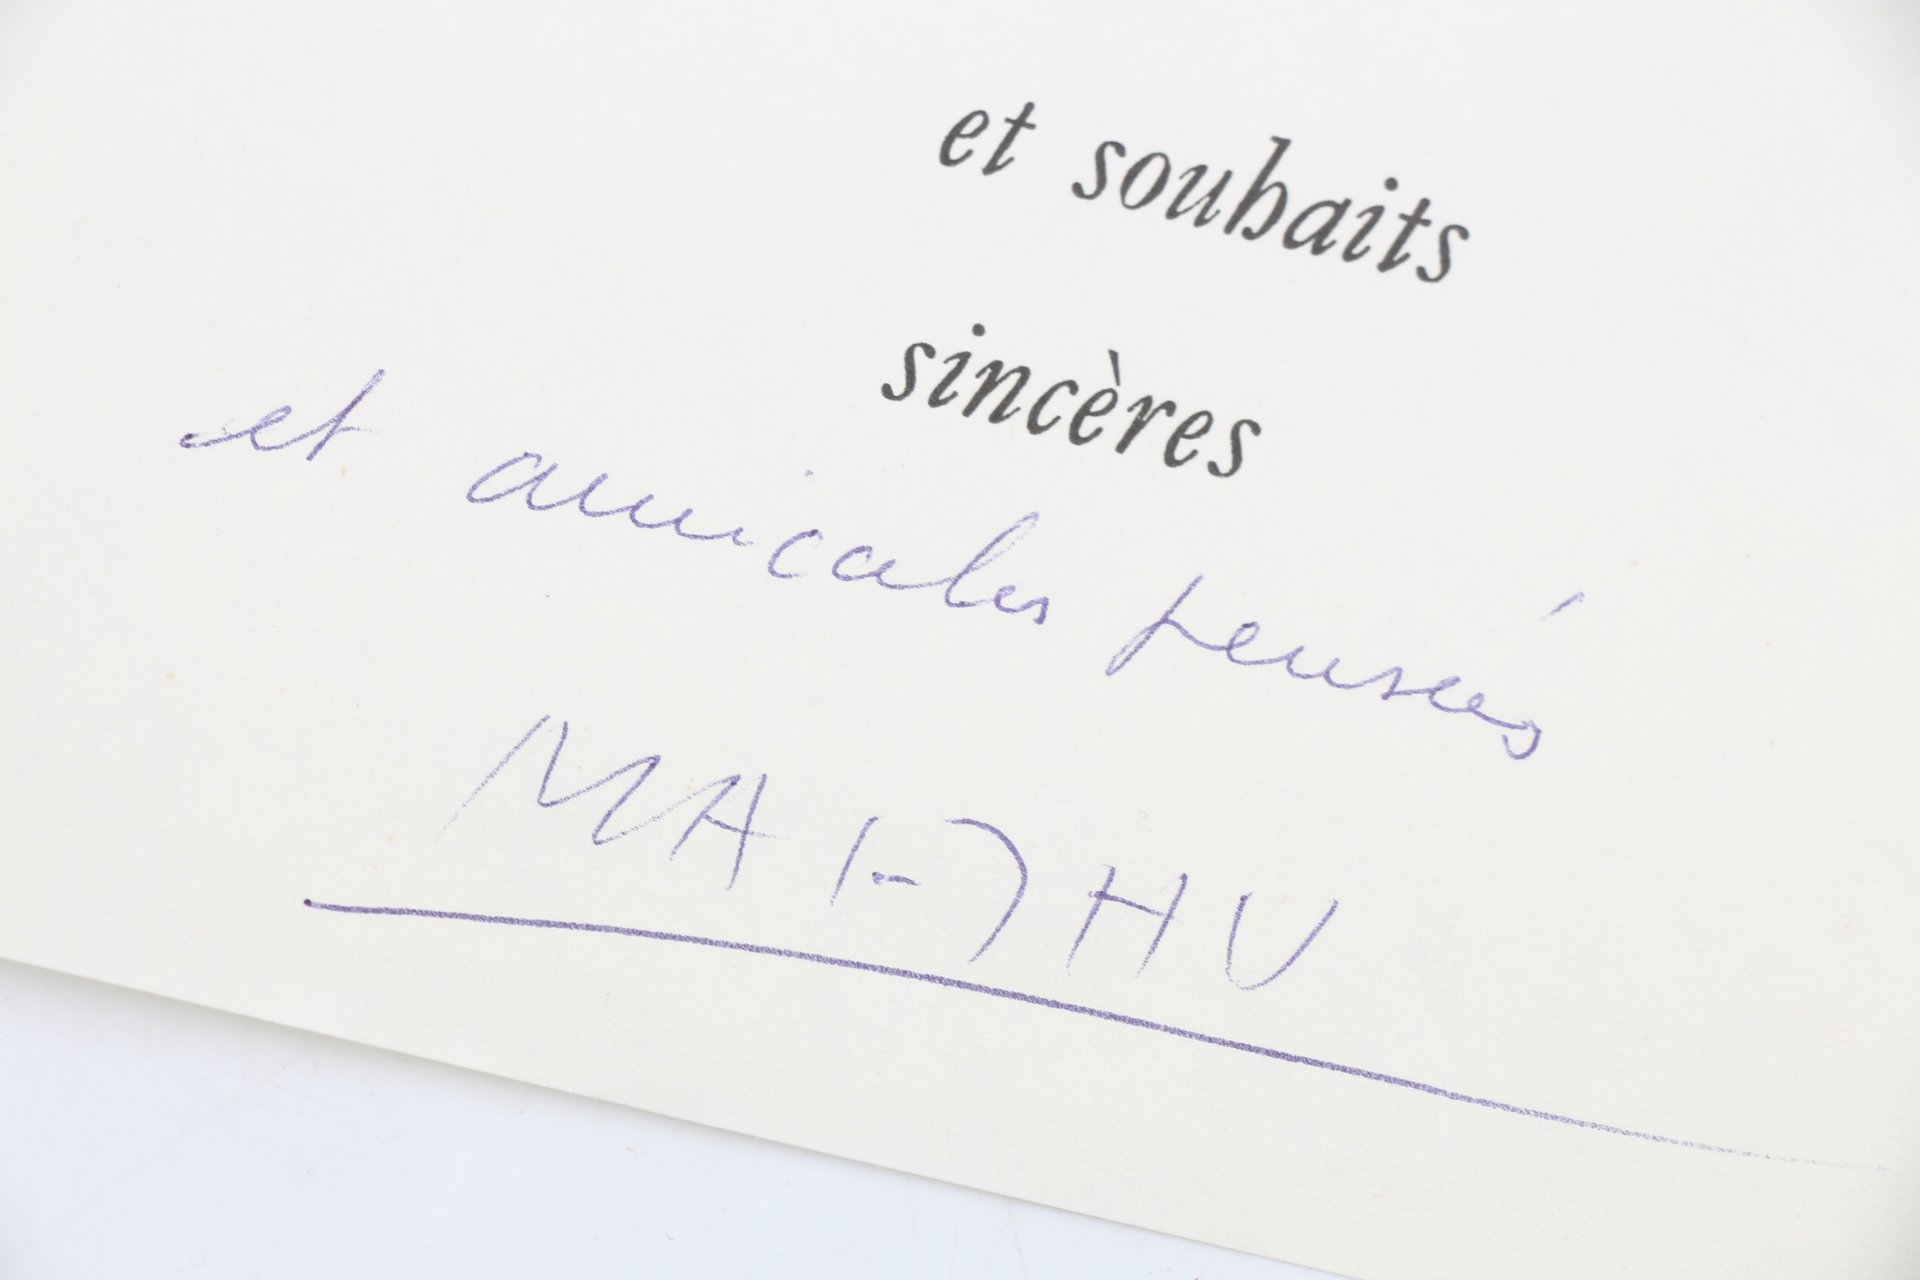 et souhaits
sincères
et amicales pensées